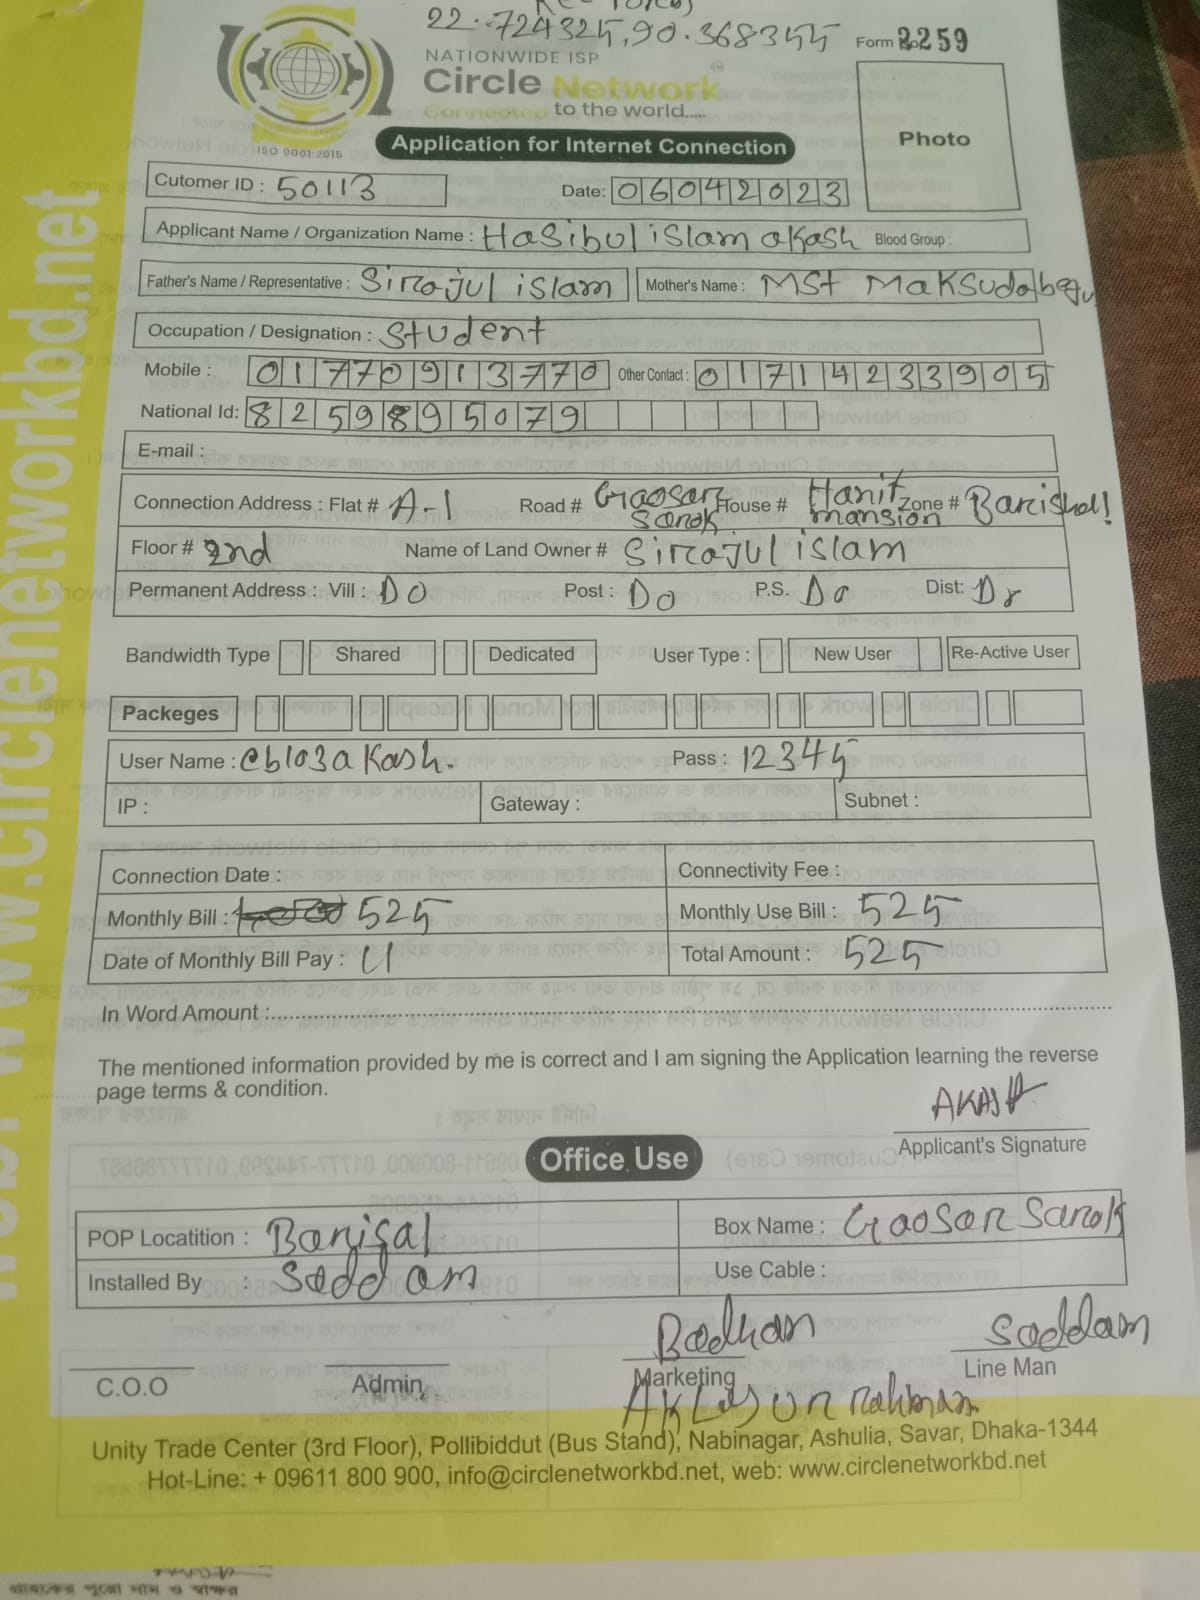 22.724325,90.368355
Form 2259
NATIONWIDE ISP
Circle Network
Connected to the world.....
ISO 9001:2015
Application for Internet Connection
Photo
Cutomer ID : 50113 Date: 06042023
Applicant Name / Organization Name : Hasibul islam akash Blood Group :
Father's Name / Representative : Sirajul islam Mother's Name : MST Maksuda begu
Occupation / Designation : Student
Mobile : 01770913770 Other Contact : 01714233905
National Id: 8259895079
E-mail :
Connection Address : Flat # A-1 Road # Gaosar Sarok House # Hanif mansion Zone # Barishal
Floor # 2nd Name of Land Owner # Sirajul islam
Permanent Address : Vill : Do Post : Do P.S. Do Dist: Do
Bandwidth Type Shared Dedicated User Type : New User Re-Active User
Packeges
User Name : cb103akash. Pass : 12345
IP : Gateway : Subnet :
Connection Date : Connectivity Fee :
Monthly Bill : 525 Monthly Use Bill : 525
Date of Monthly Bill Pay : Total Amount : 525
In Word Amount :
The mentioned information provided by me is correct and I am signing the Application learning the reverse
page terms & condition.
AKASH
Applicant's Signature
Office Use
POP Locatition : Barisal Box Name : Gaosar Sarok
Installed By : Saddam Use Cable :
Badhan Saddam
C.O.O Admin Marketing Line Man
rahman
Unity Trade Center (3rd Floor), Pollibiddut (Bus Stand), Nabinagar, Ashulia, Savar, Dhaka-1344
Hot-Line: + 09611 800 900, info@circlenetworkbd.net, web: www.circlenetworkbd.net
www.circlenetworkbd.net